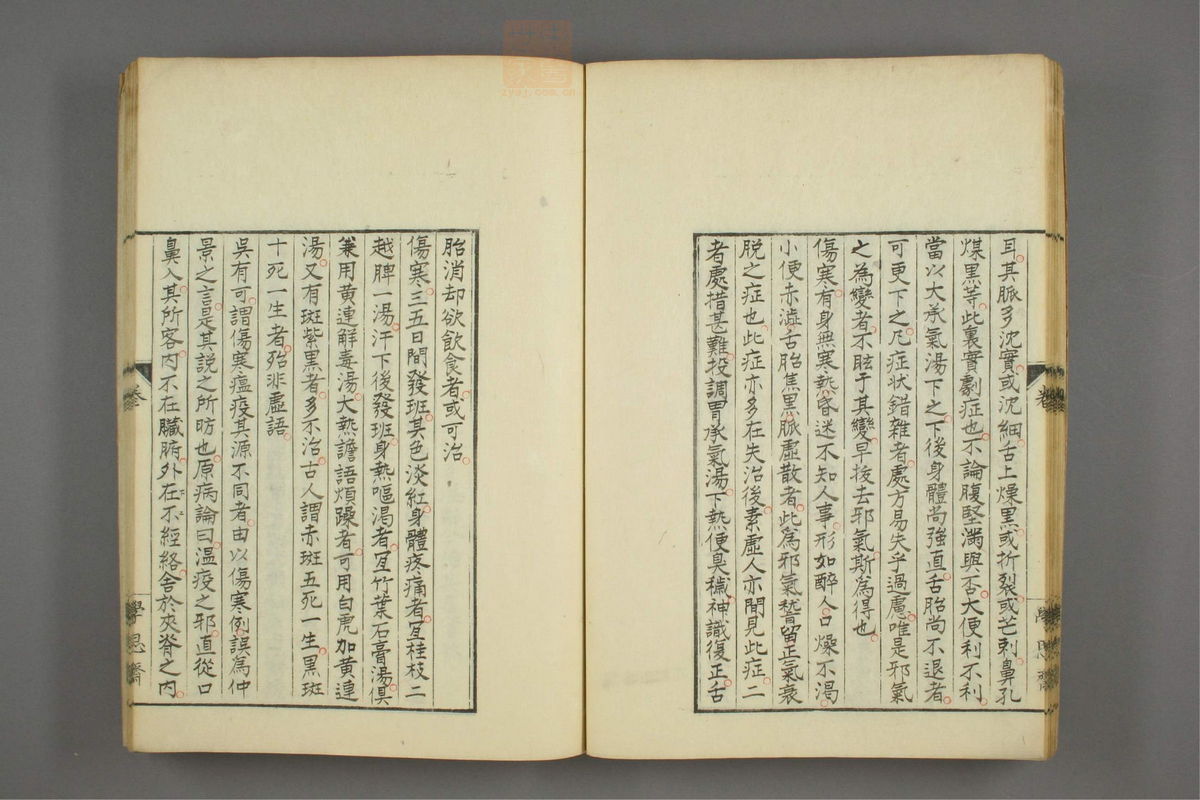 耳其脈多沈實或沈細舌上燥黒或折裂或芒刺鼻孔
煤黒等此裏實劇症也不論腹堅満與否大便利不利
當以大承氣湯下之下後身體尚強直舌胎尚不退者
可更下之凡症状錯雑者處方易失乎過慮唯是邪氣
之為變者不眩于其變早抜去邪氣斯為得也
傷寒有身無寒熱昏迷不知人事形如醉人口燥不渇
小便赤澁舌胎焦黒脈虚散者此為邪氣嵆留正氣衰
脱之症也此症亦多在失治後素虚人亦間見此症二
者處措甚難投調胃承氣湯下熱便臭穢神識復正舌
胎消却欲飲食者或可治
傷寒三五日間發班其色淡紅身體疼痛者宜桂枝二
越脾一湯汗下後發班身熱嘔渇者宜竹葉石膏湯倶
兼用黄連解毒湯大熱譫語煩躁者可用白虎加黄連
湯又有斑紫黒者多不治古人謂赤斑五死一生黒斑
十死一生者殆非虚語
呉有可謂傷寒瘟疫其源不同者由以傷寒例誤為仲
景之言是其説之所昉也原病論曰温疫之邪直從口
鼻入其所客内不在臓腑外在不經絡舎於夾脊之内
卷
學思齋